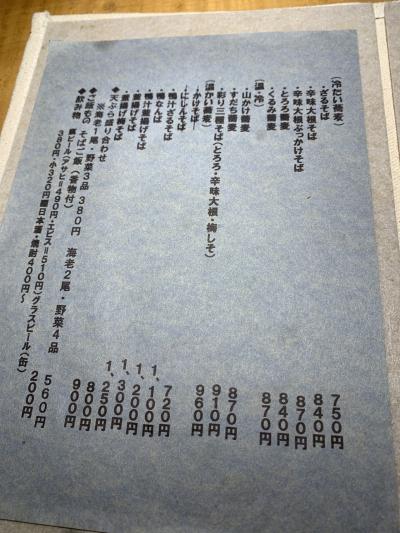 （冷たい蕎麦）
・ざるそば 750円
・辛味大根そば 840円
・辛味大根ぶっかけそば 870円
・とろろ蕎麦 840円
・くるみ蕎麦 870円
（温・冷）
・山かけ蕎麦 870円
・すだち蕎麦 910円
・彩り三種そば（とろろ・辛味大根・梅しそ） 960円
（温かい蕎麦）
・かけそば 720円
・にしんそば 1,100円
・鴨汁ざるそば 1,200円
・鴨なんば 1,300円
・鴨汁釜揚げそば 1,250円
・釜揚げそば 800円
・釜揚げ梅そば 900円
◆天ぷら盛り合わせ
※海老1尾・野菜3品 380円 海老2尾・野菜4品 560円
◆ご飯もの そばご飯（香物付） 200円
◆飲み物
ビール（アサヒ＝490円・エビス＝510円）グラスビール（缶）
380円・小320円 日本酒・焼酎400円〜